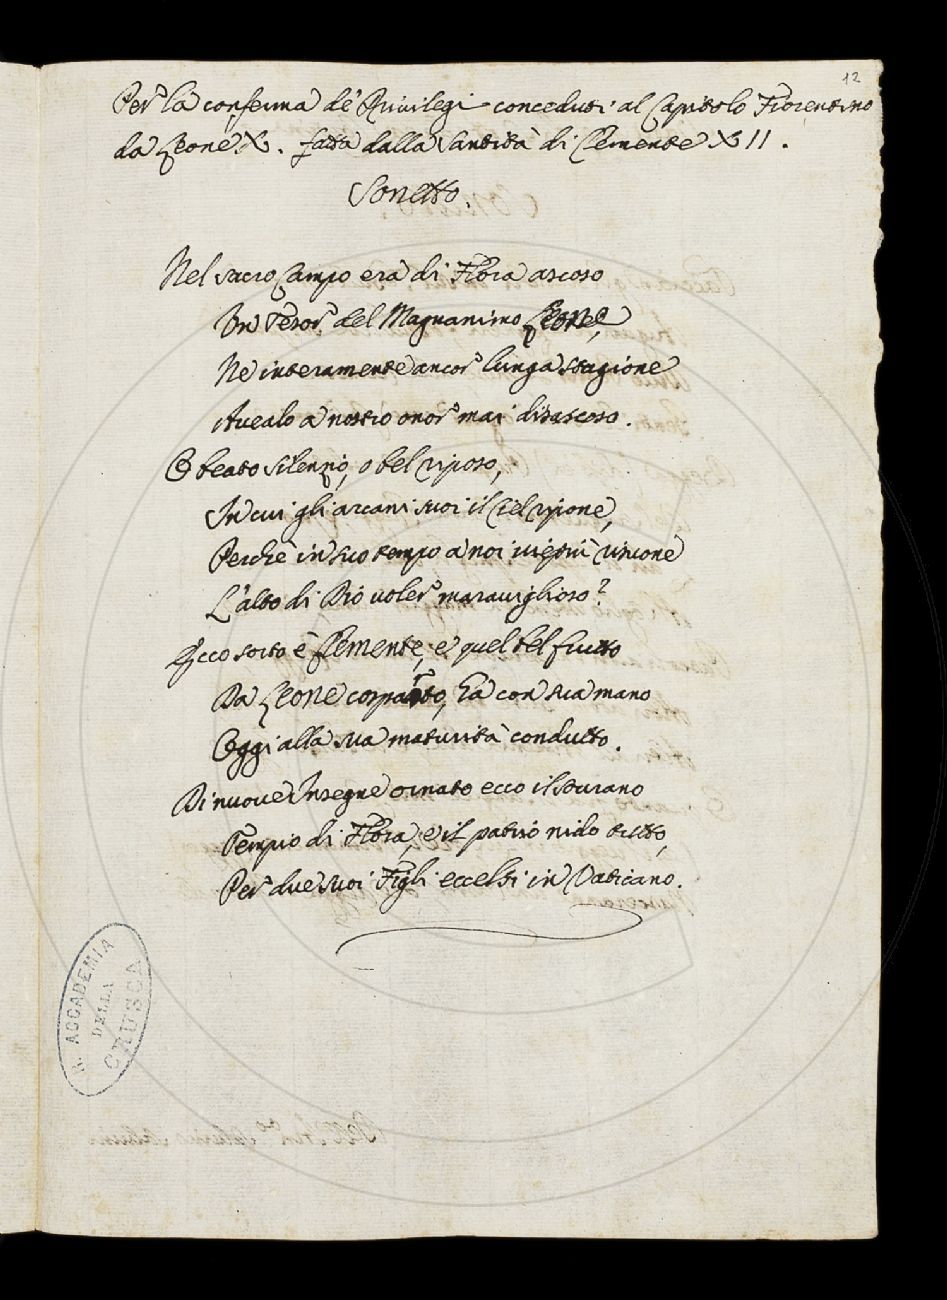 12
Per la conferma de' Privilegi conceduti al Capitolo Fiorentino
da Leone X. fatta dalla Santità di Clemente XII.
Sonetto.
Nel sacro Campo era di Flora ascoso
Un Tesor del Magnanimo Leone,
Ne interamente ancor lunga stagione
Avealo a nostro onor mai disascoso.
O beato silenzio, o bel riposo,
In cui gli arcani suoi il Ciel ripone,
Perchè in suo tempo a noi vie più risuone
L'alto di Dio voler maraviglioso!
Ecco sorto è Clemente, e quel bel frutto
Da Leone cosparto, Ei con sua mano
Oggi alla sua maturità condutto.
Di nuove Insegne ornato ecco il sovrano
Tempio di Flora, e il patrio nido tutto,
Per due suoi Figli eccelsi in Vaticano.
R. ACCADEMIA
DELLA
CRUSCA